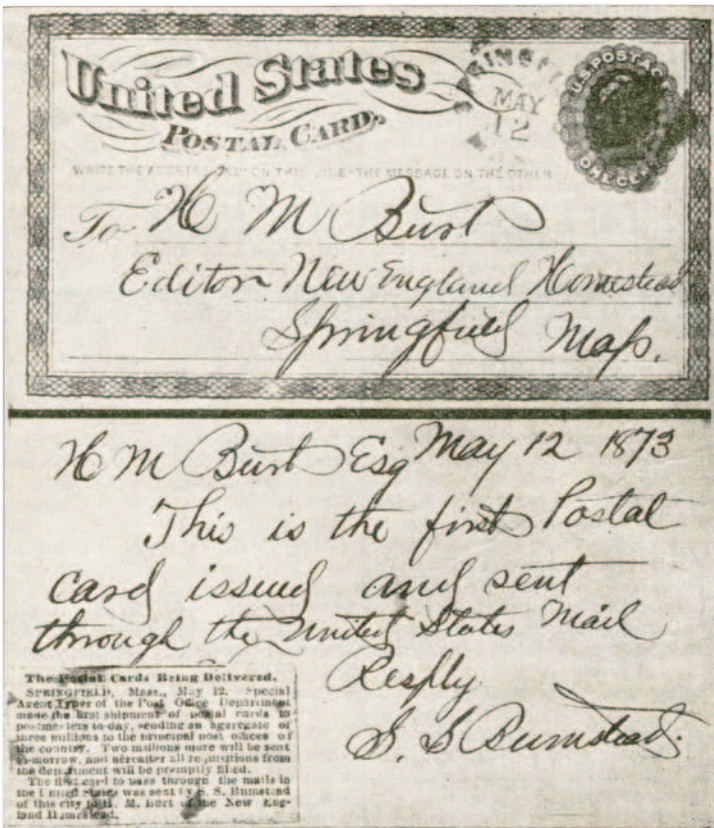 United States
POSTAL CARD.
SPRING
MAY
12
U.S. POSTAGE
ONE CENT
WRITE THE ADDRESS ONLY ON THIS SIDE - THE MESSAGE ON THE OTHER
To H M Burt
Editor New England Homestead
Springfield Mass.
H M Burt Esq May 12 1873
This is the first Postal
card issued and sent
through the United States Mail
Resply
S. S Bumstead.
The Postal Cards Being Delivered.
SPRINGFIELD, Mass., May 12. Special
Agent Typer of the Post Office Department
made the first shipment of postal cards to
postmasters to-day, sending an aggregate of
three millions to the principal post offices of
the country. Two millions more will be sent
to-morrow, and hereafter all requisitions from
the department will be promptly filled.
The first card to pass through the mails in
the United States was sent by S. S. Bumstead
of this city to H. M. Burt of the New Eng-
land Homestead.